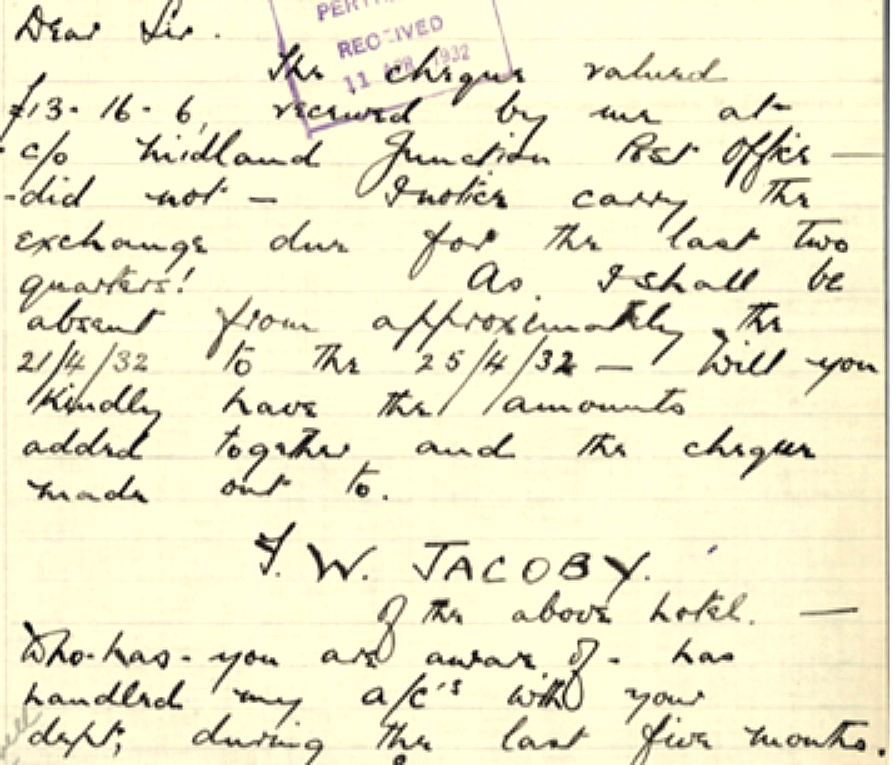 PERTH
RECEIVED
11 APR 1932
Dear Sir.
The cheque valued
£13-16-6, received by me at
c/o Midland Junction Post Office —
-did not — I notice carry the
exchange due for the last two
quarters! As I shall be
absent from approximately the
21/4/32 to the 25/4/32 — Will you
kindly have the amounts
added together and the cheque
made out to.
F. W. JACOBY.
of the above hotel. —
Who-has-you are aware of - has
handled my a/c's with your
dept, during the last five months.